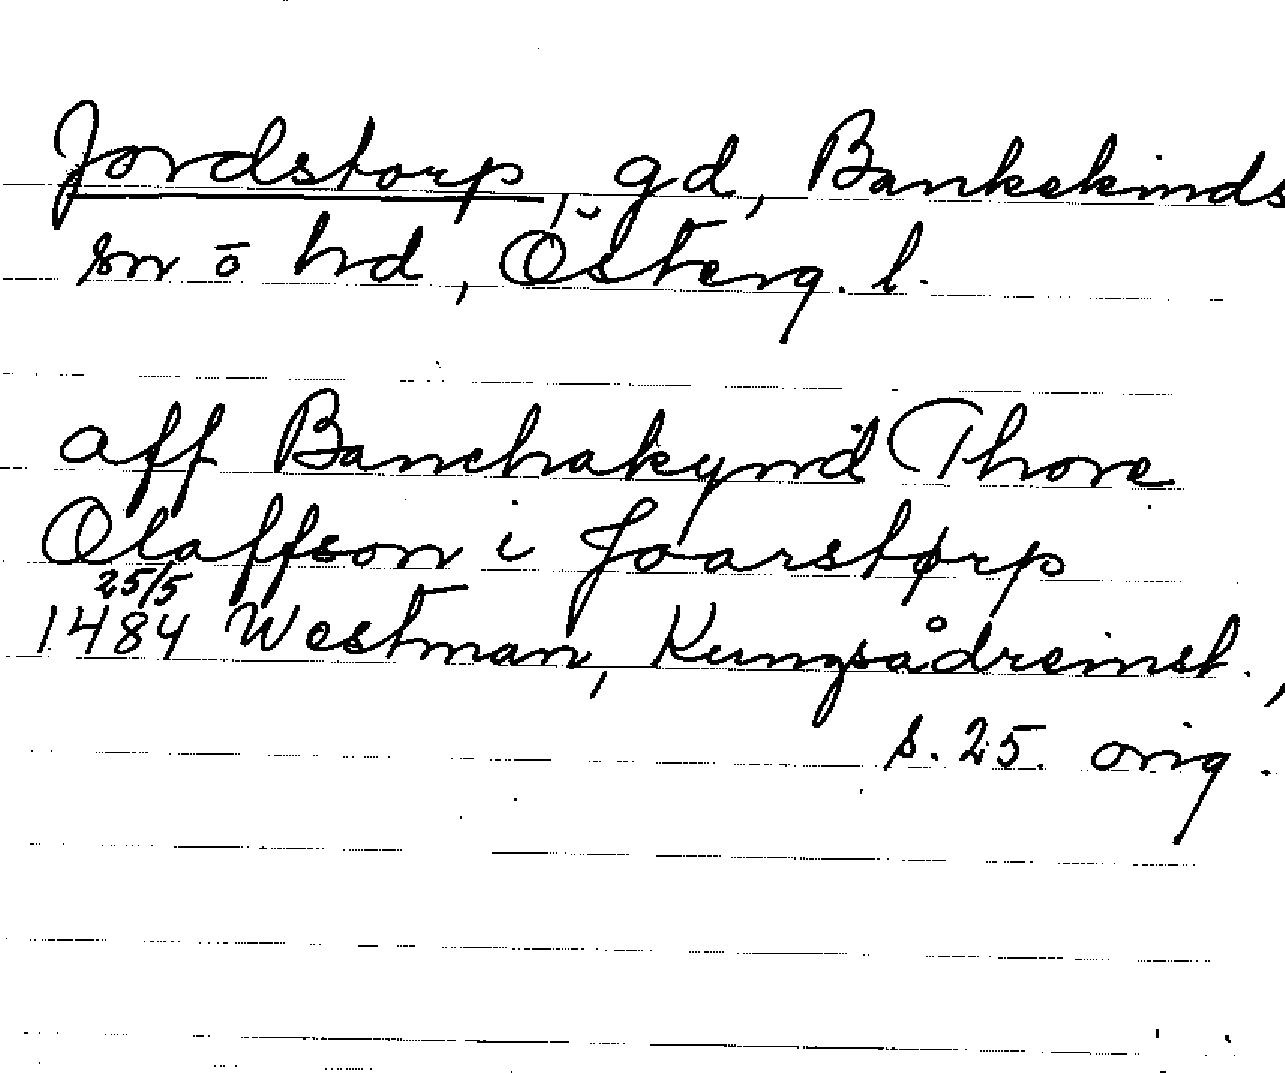 Jordstorp, gd, Bankekinds
sn o hd, Österg. l.
aff Banchakynd Thore
Olaffson i Joarstørp
25/5
1484 Westman, Kungsådreinst.,
s. 25. orig.